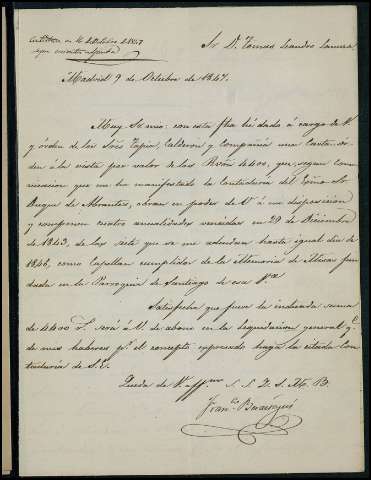 Sr D. Tomas Leandro
Madrid 9 de Octubre de 1847.
Muy Sr mio: con esta fha he dado á cargo de V.
y órden de los Sres Tapia, Calderon y compañia una Carta-or-
den á la vista por valor de los Rvon 4400, que, segun comu-
nicacion que me ha manifestado la Contaduria del Exmo Sr
Duque de Abrantes, obran en poder de V. á mi disposicion
y componen cuatro anualidades vencidas en 29 de Diciembre
de 1843, de las siete que se me adeudan hasta igual dia de
1846, como Capellan cumplidor de la Memoria de Misas fun-
dada en la Parroquia de Santiago de esa
Satisfecha que fuere la indicada suma
de 4400 será á V. de abono en la liquidacion general qe
de mis haberes pr el concepto espresado haga la citada Con-
taduria de S.E.
Queda de V. affmo S. S. Q. S. M. B.
Franco